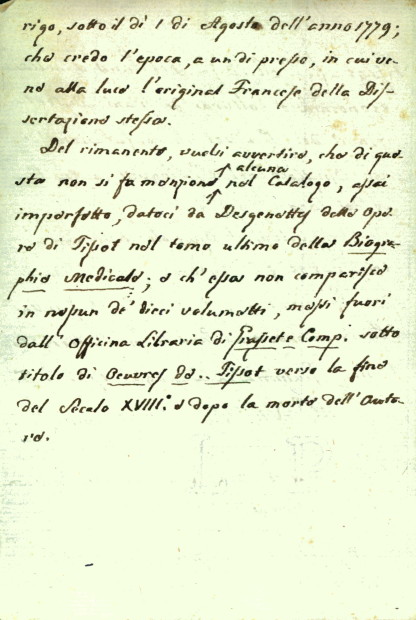 rigo, sotto il dì 1 di Agosto dell'anno 1779;
che credo l'epoca, a un di presso, in cui ve-
ne alla luce l'original Francese della Dis-
sertazione stessa.
Del rimanente, vuolsi avvertire, che di que-
sta non si fa menzione alcuna nel Catalogo, assai
imperfetto, datoci da Desgenettes delle Ope-
re di Tissot nel tomo ultimo della Biogra-
phie Medicale; e ch'essa non comparisce
in nessun de' dieci volumetti, messi fuori
dall'Officina Libraria di Grasset e Comp. sotto
titolo di Oeuvres de.. Tissot verso la fine
del Secolo XVIII.° e dopo la morte dell'Auto-
re.